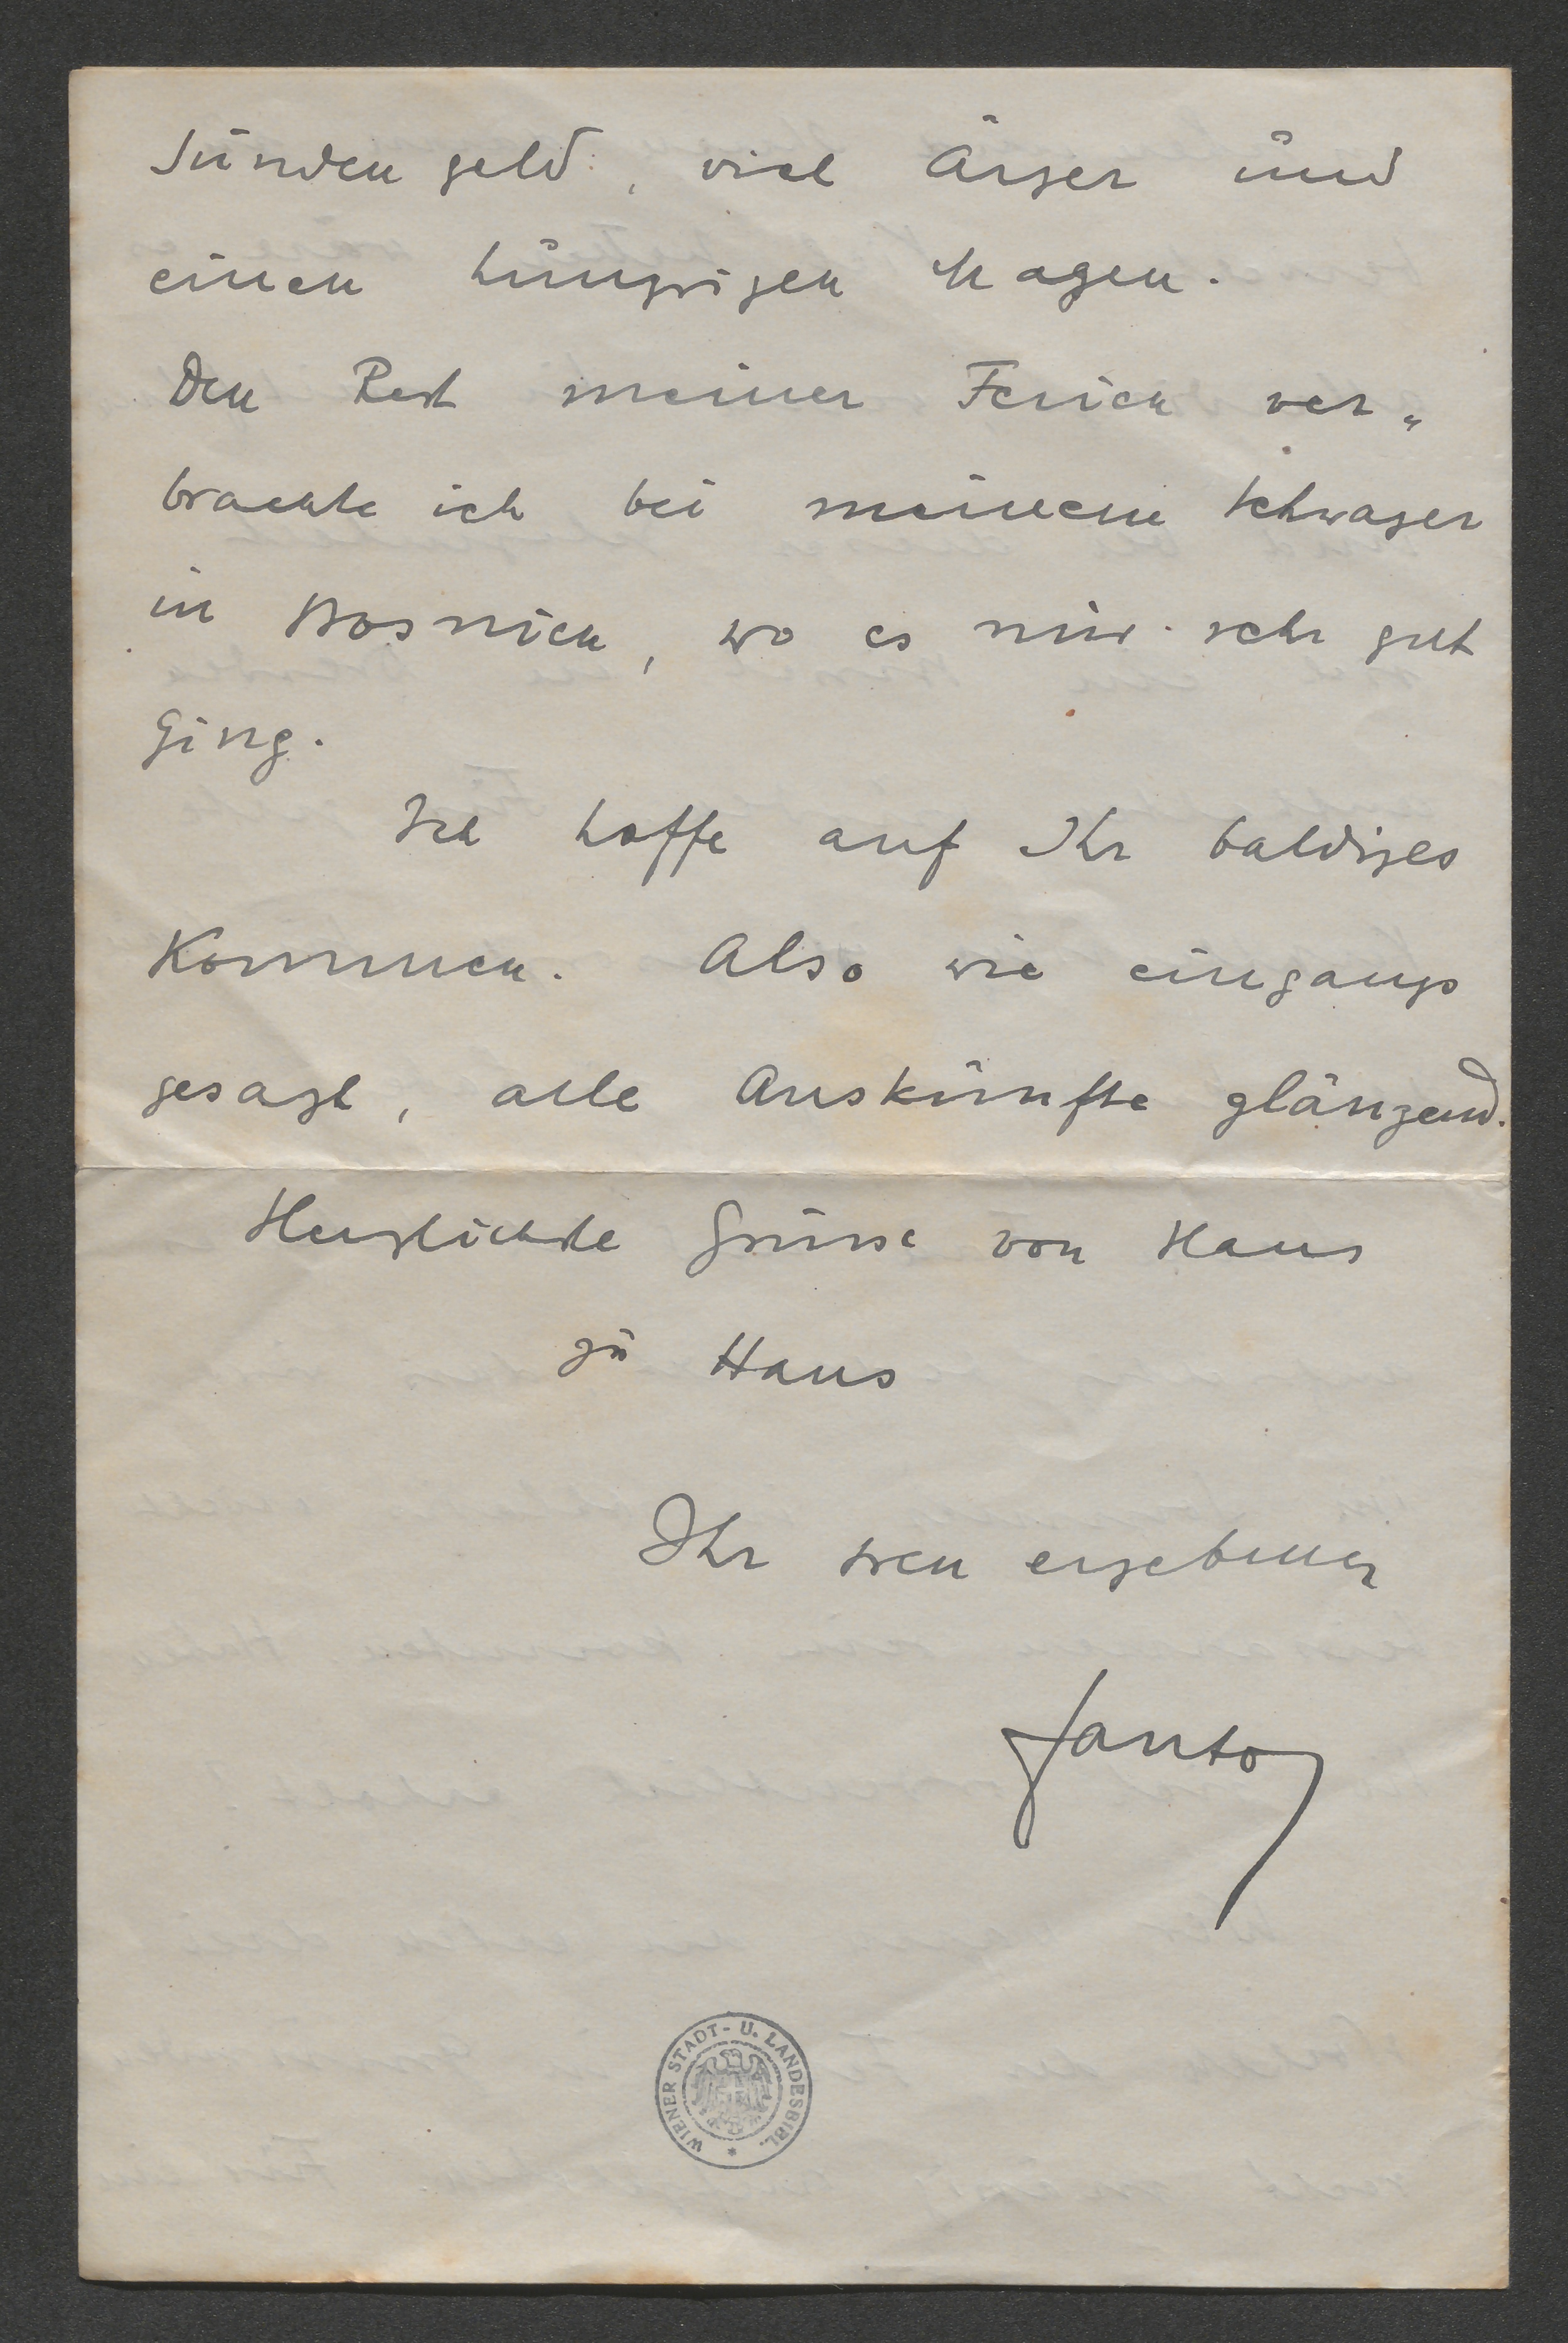 Sündengeld, viel Ärger und
einen hungrigen Magen.
Den Rest meiner Ferien ver„
brachte ich bei meinem Schwager
in Bosnien, wo es mir sehr gut
Ging.
Ich hoffe auf Ihr baldiges
Kommen. Also wie eingangs
gesagt, alle Auskünfte glänzend.
Herzlichste Grüsse von Haus
zu Haus
Ihr treu ergebener
Janto
WIENER STADT- U. LANDESBIBL. *